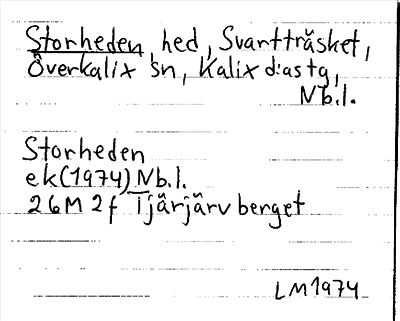 Storheden, hed, Svartträsket,
Överkalix sn, Kalix d:as tg,
Nb.l.
Storheden
ek(1974) Nb.l.
26M 2f Tjärjärvberget
LM1974